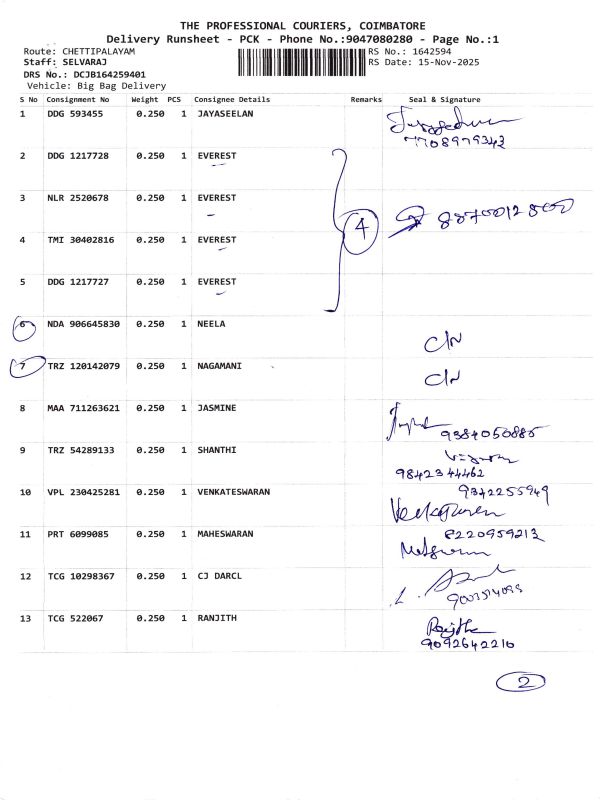 THE PROFESSIONAL COURIERS, COIMBATORE
Delivery Runsheet - PCK - Phone No.:9047080280 - Page No.:1
Route: CHETTIPALAYAM RS No.: 1642594
Staff: SELVARAJ RS Date: 15-Nov-2025
DRS No.: DCJB164259401
Vehicle: Big Bag Delivery
S No Consignment No Weight PCS Consignee Details Remarks Seal & Signature
1 DDG 593455 0.250 1 JAYASEELAN
7708979343
2 DDG 1217728 0.250 1 EVEREST
3 NLR 2520678 0.250 1 EVEREST
4 8870012800
4 TMI 30402816 0.250 1 EVEREST
5 DDG 1217727 0.250 1 EVEREST
6 NDA 906645830 0.250 1 NEELA C/N
7 TRZ 120142079 0.250 1 NAGAMANI C/N
8 MAA 711263621 0.250 1 JASMINE
9384050885
9 TRZ 54289133 0.250 1 SHANTHI
9842344462
10 VPL 230425281 0.250 1 VENKATESWARAN 9342255949
11 PRT 6099085 0.250 1 MAHESWARAN 8220959213
12 TCG 10298367 0.250 1 CJ DARCL
13 TCG 522067 0.250 1 RANJITH Ranjith
9092642210
2